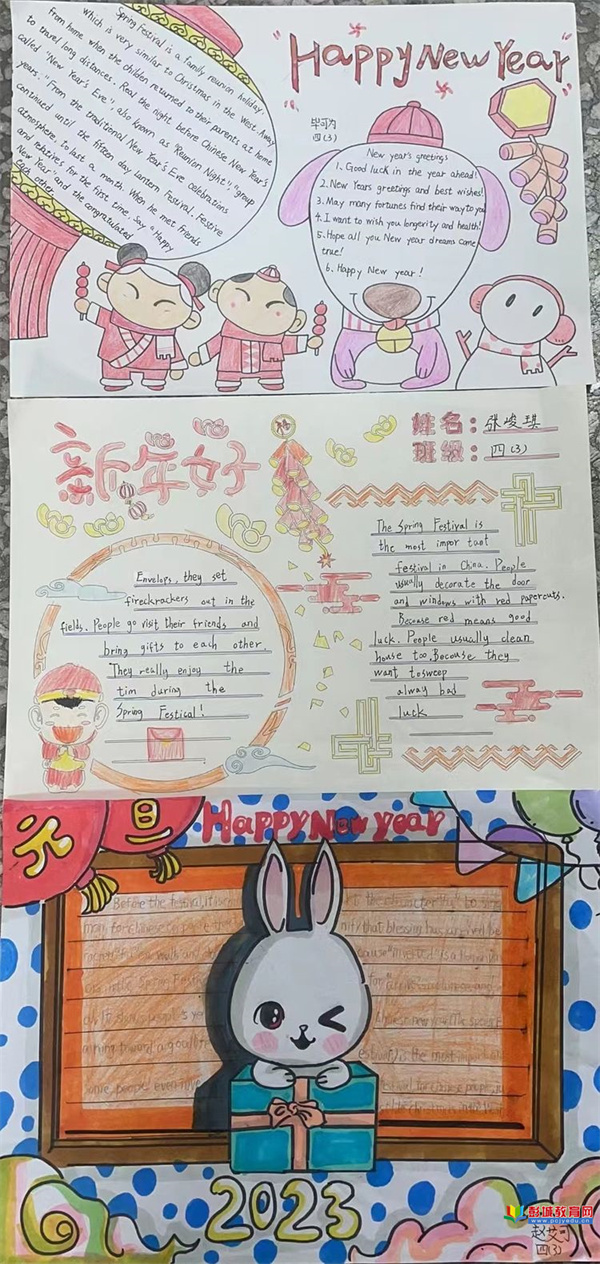 Spring Festival is a family reunion holiday.
which is very similar to Christmas in the West. Away
from home when the children returned to their parents at home
to travel long distances. Real the night before Chinese New Year's
called "New Year's Eve", also known as "Reunion Night", "group
years." From the traditional New Year's Eve celebrations
continued until the fifteen day lantern festival. Festive
atmosphere to last a month. When he met friends
and relatives for the first time, Say "Happy
New Year" and the congratulated
each other.
Happy New Year
毕可为
四(3)
New year's greetings
1. Good luck in the year ahead!
2. New Years greetings and best wishes!
3. May many fortunes find their way to you
4. I want to wish you longerity and health!
5. Hope all you New year dreams come
true!
6. Happy New year!
新年好
姓名: 张峻琪
班级: 四(3)
Envelops, they set
fireckrackers out in the
fields. People go visit their friends and
bring gifts to each other.
They really enjoy the
tim during the
Spring Festical!
The Spring Festival is
the most impor tant
festival in China. People
usually decorate the door
and windows with red papercuts.
Becouse red means good
luck. People usually clean
house too. Becouse they
want tosweep
alway bad
luck
元旦
Happy New year
Before the festival, it is
the character "fu"
mon for Chinese
that blessing has arrived
Spring Festival
Chinese new year
a goal
is the most
some people even
2023
彭城教育网
www.pcjyedu.cn
四(3)